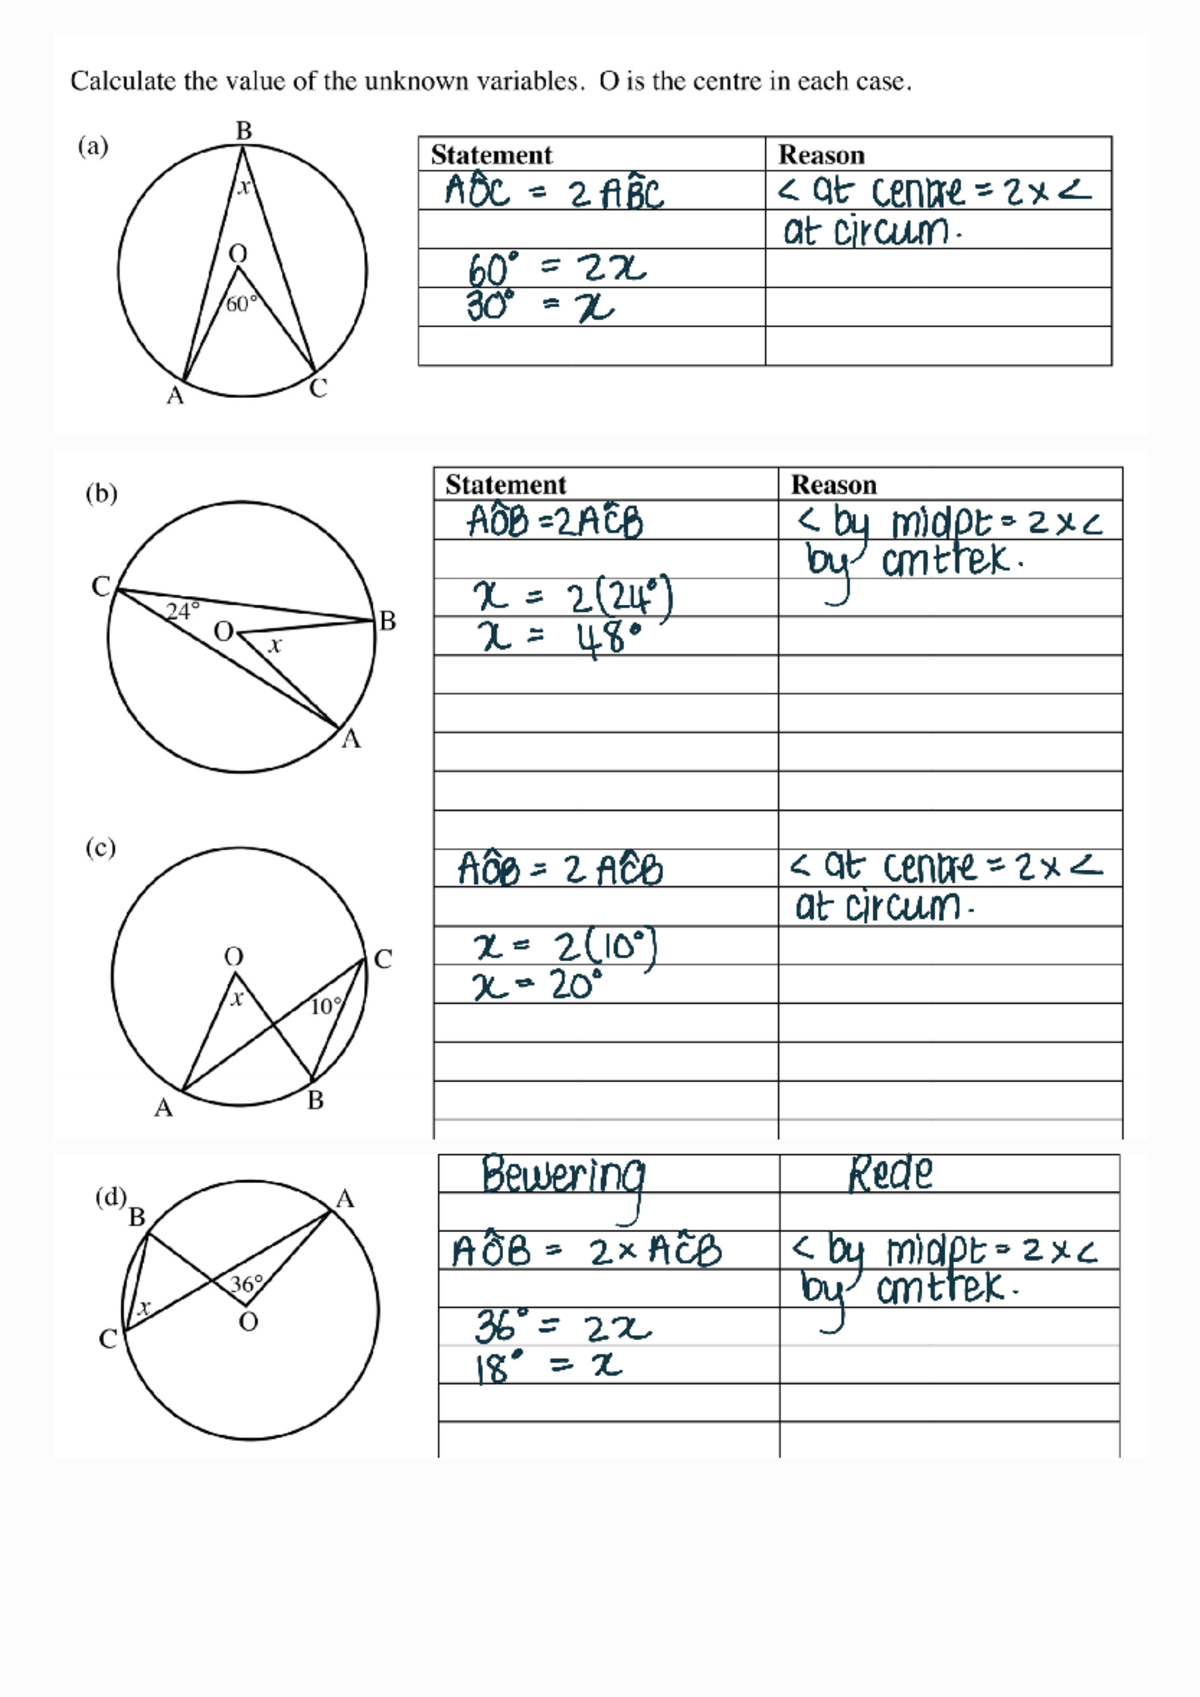 Calculate the value of the unknown variables. O is the centre in each case.
(a)
B
x
O
60°
A
C
Statement Reason
AÔC = 2 AB̂C < at centre = 2 x <
at circum.
60° = 2x
30° = x
(b)
C
24°
O
x
B
A
Statement Reason
AÔB = 2AĈB < by midpt = 2 x <
by omtrek.
x = 2(24°)
x = 48°
(c)
O
x
C
10°
A
B
AÔB = 2 AĈB < at centre = 2 x <
at circum.
x = 2(10°)
x = 20°
(d)
B
A
36°
x
O
C
Bewering Rede
AÔB = 2 x AĈB < by midpt = 2 x <
by omtrek.
36° = 2x
18° = x